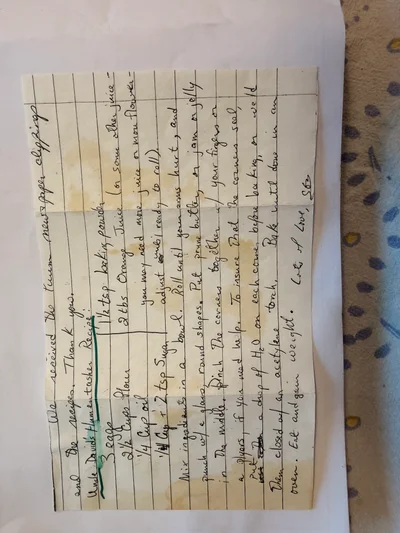 We received the Purim newspaper clippings
and the recipes. Thank you.
Uncle David's Humentashen Recipe:
3 eggs
2 1/2 Cups Flour
1/4 Cup oil
1/4 Cup + 2 tsp Sugar
1 1/2 tsp baking powder
2 tbs Orange Juice (or some other juice -
you may need more juice or more flour -
adjust until ready to roll)
Mix ingredients in a bowl. Roll until your arms hurt, and
punch w/ a glass, round shapes. Put prune butter, or jam or jelly
in the middle. Pinch the corners together w/ your fingers or
a plyers if you need help. To insure that the corners seal,
put a drop of H2O on each corner before baking, or weld
them closed w/ an acetylene torch. Bake until done in an
oven. Eat and gain weight. Lots of Love,